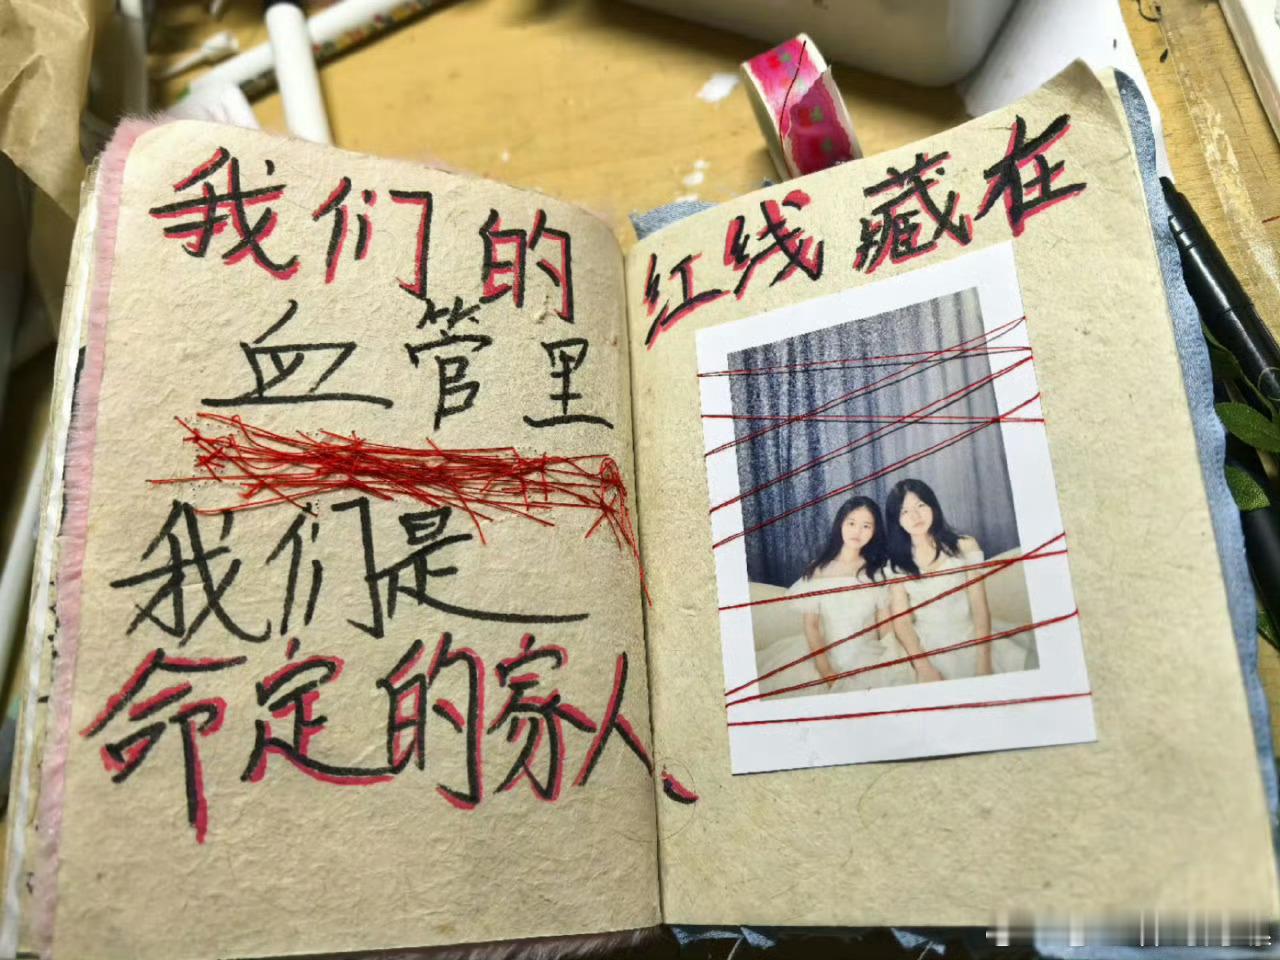 红线藏在
我们的
血管里
我们是
命定的家人